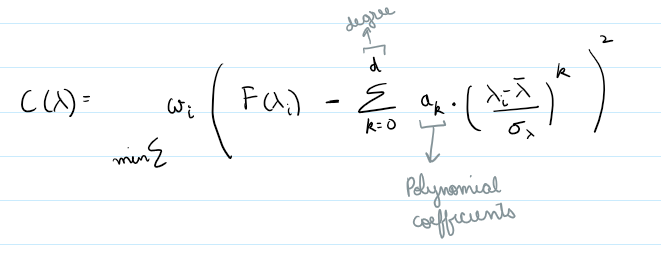 degree
C(λ) = min Σ ωᵢ ( F(λᵢ) - Σ_{k=0}^{d} aₖ · ( (λᵢ - λ̄) / σ_λ )^k )²
Polynomial
coefficients